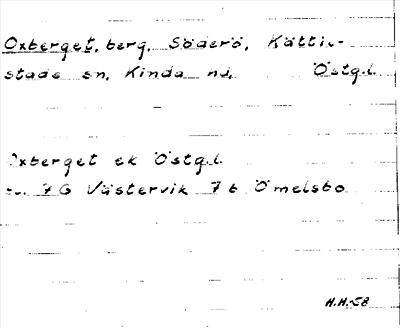 Oxberget, berg, Söderö, Kättil-
stads sn, Kinda hd, Östg.l.
Oxberget ek Östg.l.
7G Västervik 7b Ömelsbo
H.H. -58